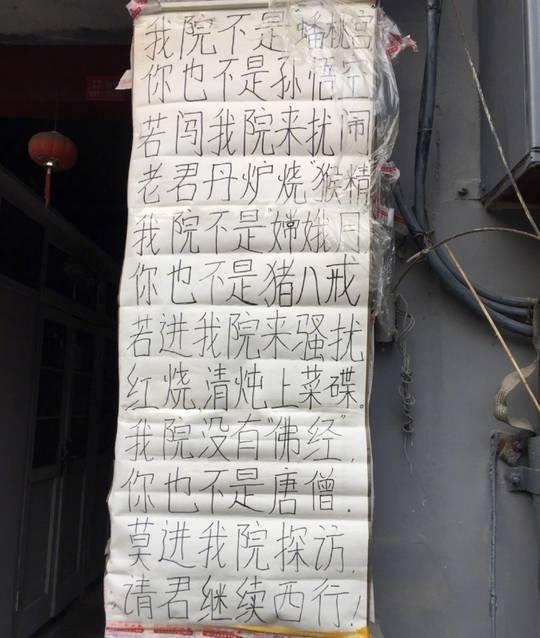 我院不是"蟠桃宫
你也不是孙悟空
若闯我院来扰闹
老君丹炉烧"猴精
我院不是"嫦娥月
你也不是猪八戒
若进我院来骚扰
红烧清炖上菜碟。
我院没有"佛经",
你也不是唐僧.
莫进我院探访,
请君继续西行!